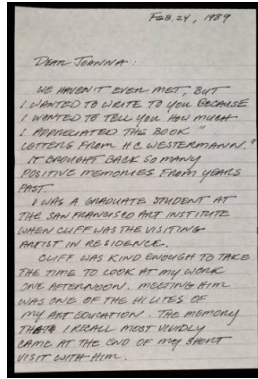 FEB. 24, 1989
DEAR JOANNA:
WE HAVEN'T EVEN MET, BUT
I WANTED TO WRITE TO YOU BECAUSE
I WANTED TO TELL YOU HOW MUCH
I APPRECIATED THE BOOK "
LETTERS FROM H.C. WESTERMANN."
IT BROUGHT BACK SO MANY
POSITIVE MEMORIES FROM YEARS
PAST.
I WAS A GRADUATE STUDENT AT
THE SAN FRANCISCO ART INSTITUTE
WHEN CLIFF WAS THE VISITING
ARTIST IN RESIDENCE.
CLIFF WAS KIND ENOUGH TO TAKE
THE TIME TO LOOK AT MY WORK
ONE AFTERNOON. MEETING HIM
WAS ONE OF THE HI LITES OF
MY ART EDUCATION. THE MEMORY
THAT I RECALL MOST VIVIDLY
CAME AT THE END OF MY SHORT
VISIT WITH HIM.